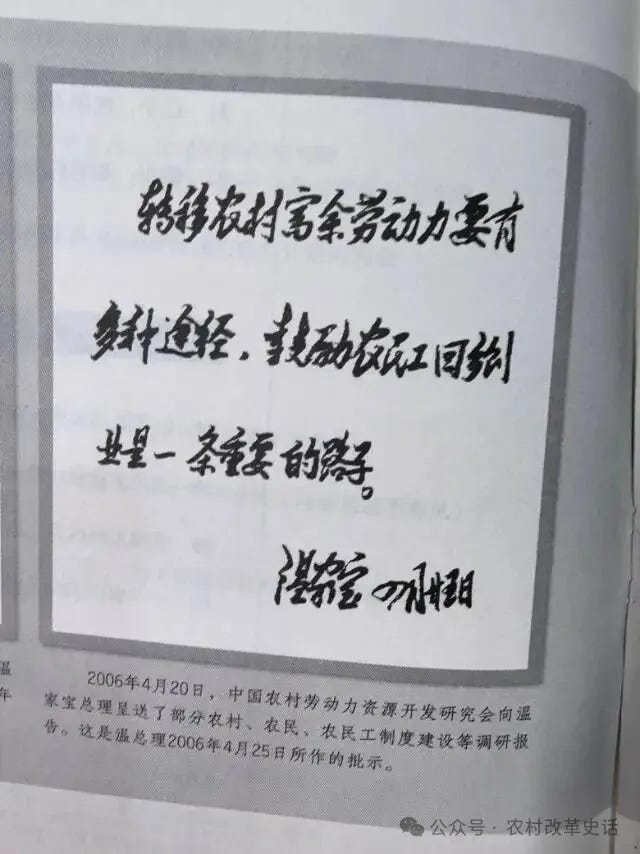 转移农村富余劳动力要有
多种途经，鼓励农民工回乡创
业是一条重要的路子。
温家宝 四月廿五日
温
年
2006年4月20日，中国农村劳动力资源开发研究会向温
家宝总理呈送了部分农村、农民、农民工制度建设等调研报
告。这是温总理2006年4月25日所作的批示。
公众号·农村改革史话